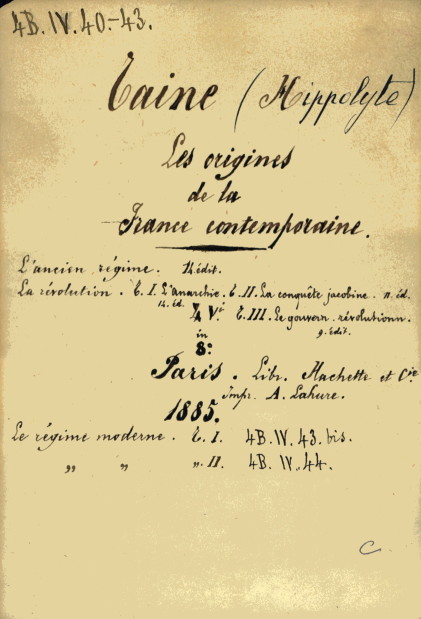 4B.IV.40.-43.
Taine (Hippolyte)
Les origines
de la
France contemporaine.
L'ancien régime. 14 édit.
La révolution. T. I. L'anarchie. T. II. La conquête jacobine. 11. éd.
14. éd.
4 V. T. III. Le gouvern. révolutionn.
9. édit.
in
8:
Paris. Libr. Hachette et Cie.
Impr. A. Lahure.
1885.
Le régime moderne. T. I. 4B.IV.43.bis.
„ „ „ II. 4B.IV.44.
C